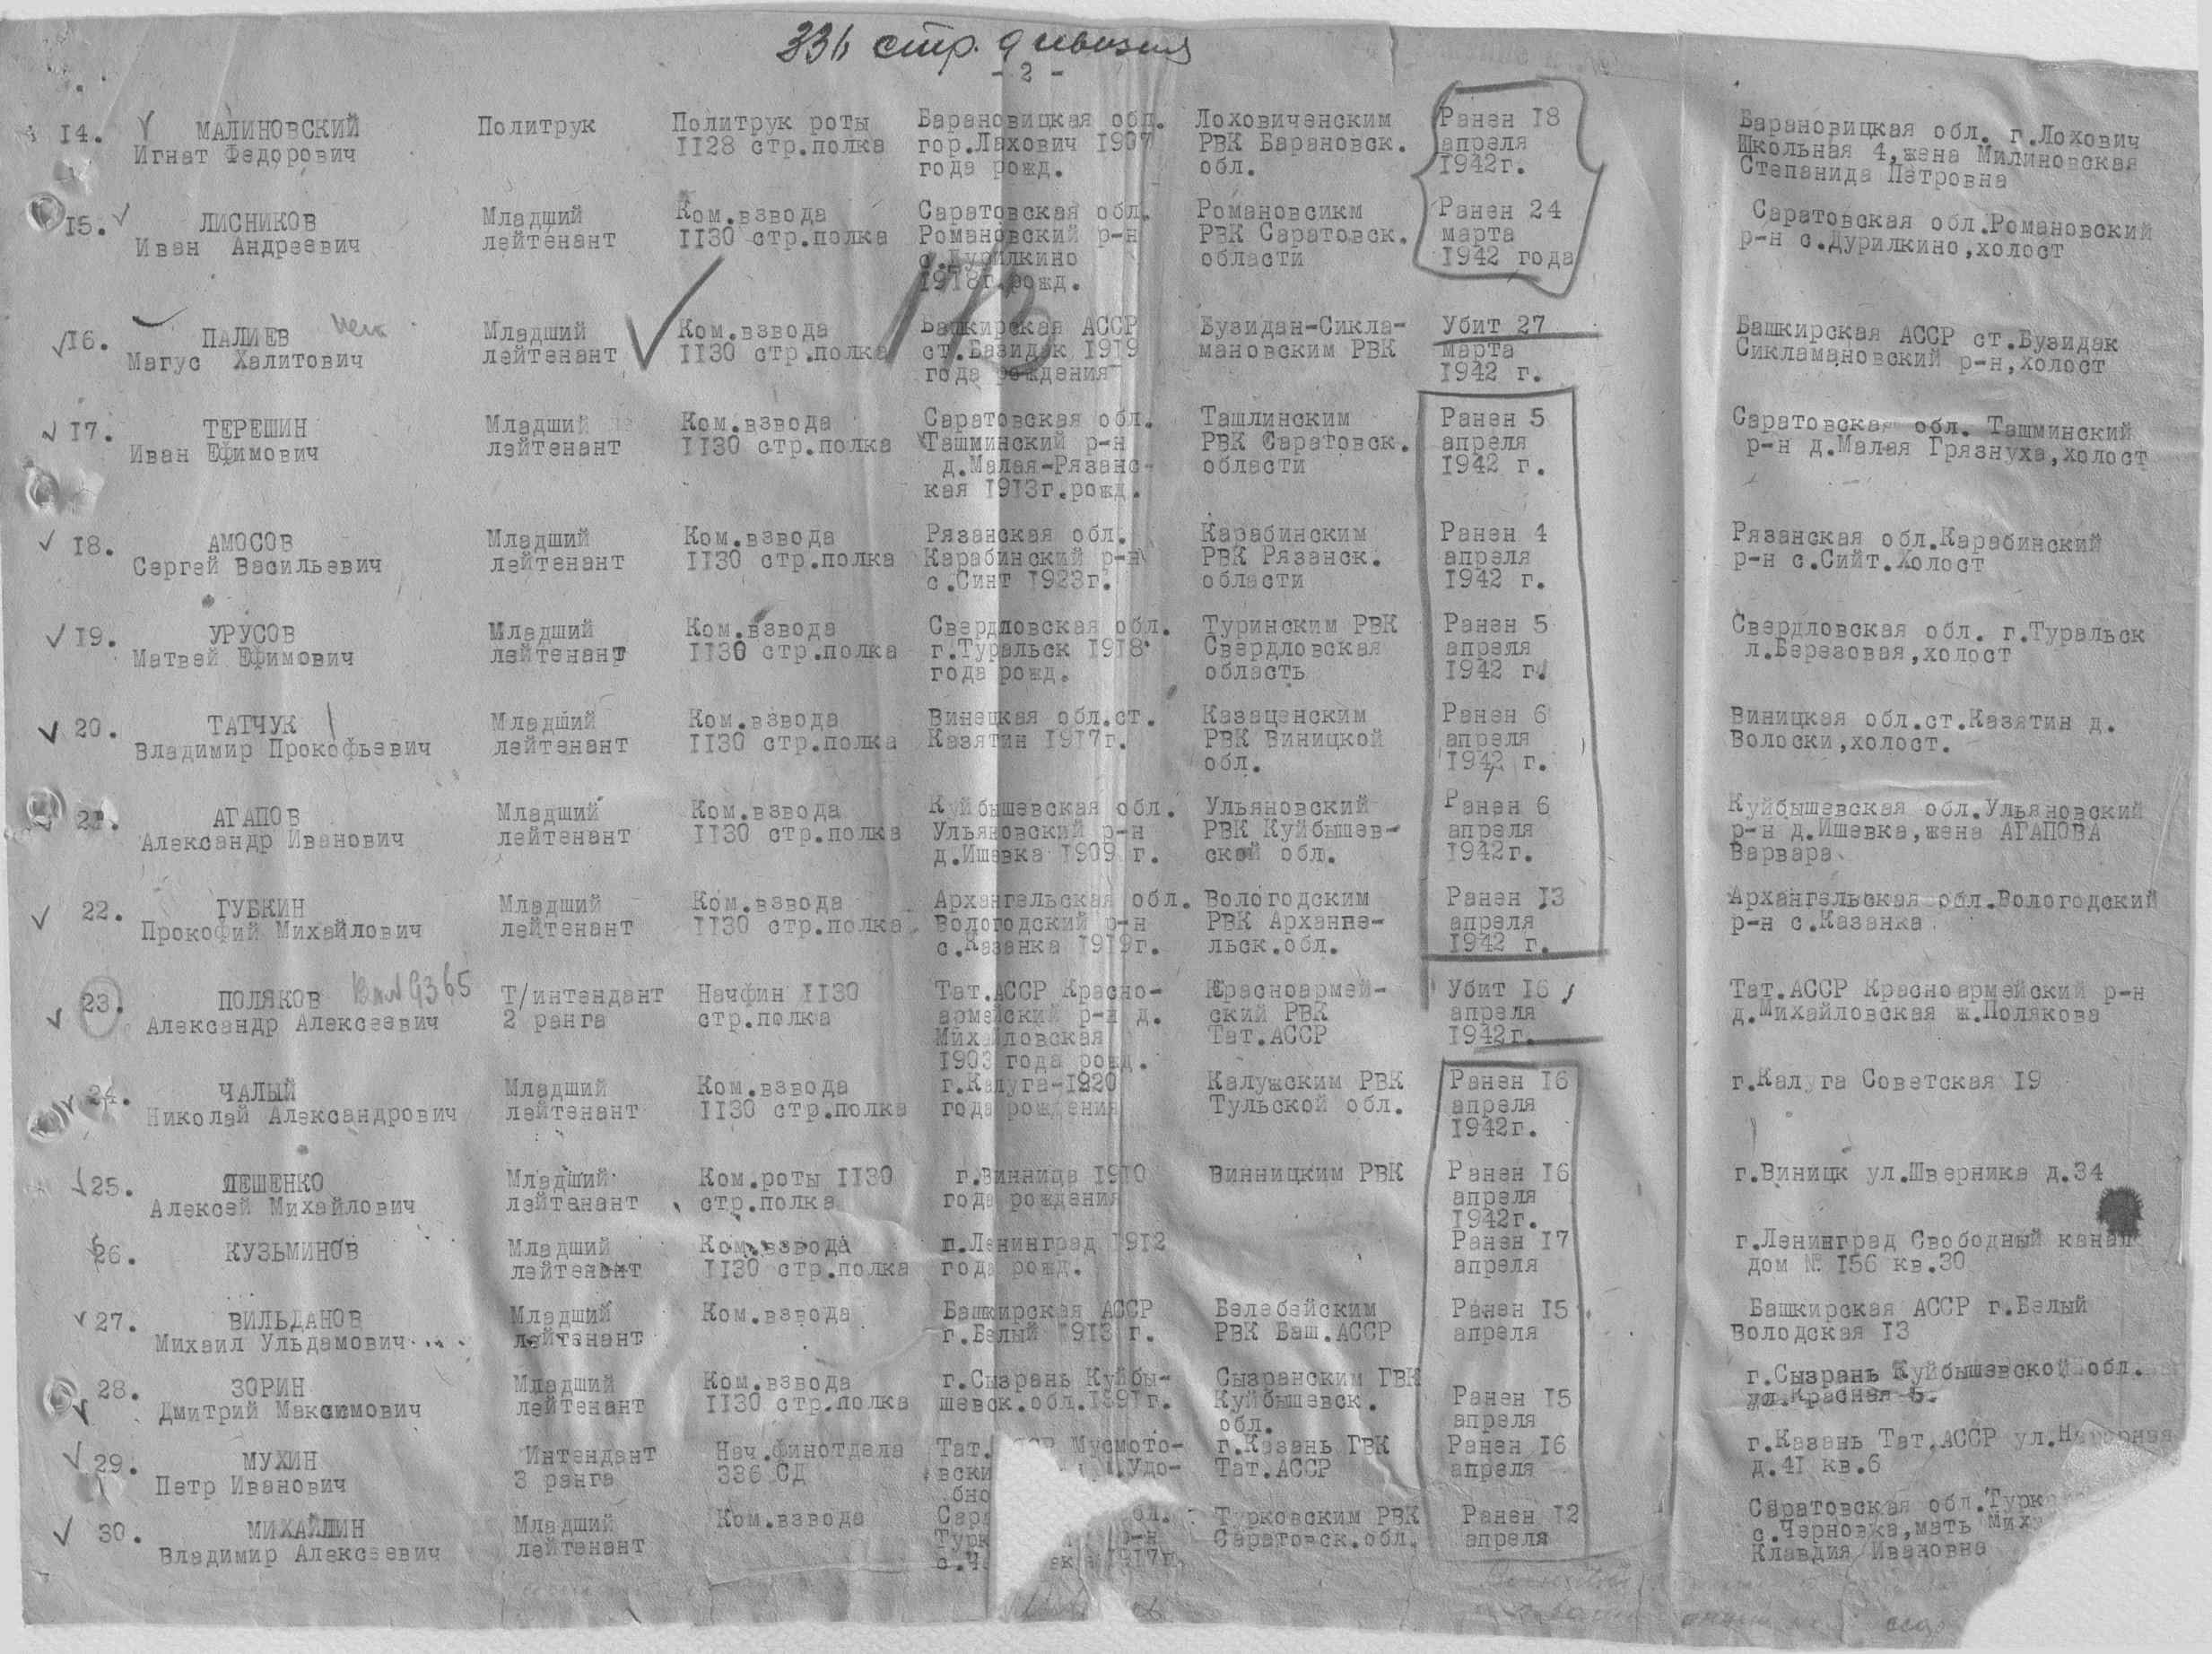 336 стр. дивизия
- 2 -
14. МАЛИНОВСКИЙ Политрук Политрук роты Барановицкая обл. Лоховиченским Ранен 18 Барановицкая обл. г.Лохович
Игнат Федорович 1128 стр.полка гор.Ляхович 1907 РВК Барановск. апреля Школьная 4,жена Милиновская
года рожд. обл. 1942г. Степанида Петровна
15. ЛИСНИКОВ Младший Ком.взвода Саратовская обл. Романовсикм Ранен 24 Саратовская обл.Романовский
Иван Андреевич лейтенант 1130 стр.полка Романовский р-н РВК Саратовск. марта р-н с.Дурилкино,холост
с.Дурилкино области 1942 года
1918г.рожд.
16. ПАЛИЕВ Младший Ком.взвода Башкирская АССР Бузидан-Сикла- Убит 27 Башкирская АССР ст.Бузидак
Магус Халитович лейтенант 1130 стр.полка ст.Базидак 1919 мановским РВК марта Сикламановский р-н,холост
года рождения 1942 г.
17. ТЕРЕШИН Младший Ком.взвода Саратовская обл. Ташлинским Ранен 5 Саратовская обл. Ташминский
Иван Ефимович лейтенант 1130 стр.полка Ташминский р-н РВК Саратовск. апреля р-н д.Малая Грязнуха,холост
д.Малая-Рязанс- области 1942 г.
кая 1913г.рожд.
18. АМОСОВ Младший Ком.взвода Рязанская обл. Карабинским Ранен 4 Рязанская обл.Карабинский
Сергей Васильевич лейтенант 1130 стр.полка Карабинский р-н РВК Рязанск. апреля р-н с.Сийт.Холост
с.Синт 1923г. области 1942 г.
19. УРУСОВ Младший Ком.взвода Свердловская обл. Туринским РВК Ранен 5 Свердловская обл. г.Туральск
Матвей Ефимович лейтенант 1130 стр.полка г.Туральск 1918 Свердловская апреля л.Березовая,холост
года рожд. область 1942 г.
20. ТАТЧУК Младший Ком.взвода Винецкая обл.ст. Казаценским Ранен 6 Виницкая обл.ст.Казятин д.
Владимир Прокофьевич лейтенант 1130 стр.полка Казятин 1917г. РВК Виницкой апреля Волоски,холост.
обл. 1942 г.
21. АГАПОВ Младший Ком.взвода Куйбышевская обл. Ульяновский Ранен 6 Куйбышевская обл.Ульяновский
Александр Иванович лейтенант 1130 стр.полка Ульяновский р-н РВК Куйбышев- апреля р-н д.Ишевка,жена АГАПОВА
д.Ишевка 1909 г. ской обл. 1942г. Варвара
22. ГУБКИН Младший Ком.взвода Архангельская обл. Вологодским Ранен 13 Архангельская обл.Вологодский
Прокофий Михайлович лейтенант 1130 стр.полка Вологодский р-н РВК Арханге- апреля р-н с.Казанка
с.Казанка 1919г. льск.обл. 1942 г.
23. ПОЛЯКОВ Т/интендант Начфин 1130 Тат.АССР Красно- Красноармей- Убит 16 Тат.АССР Красноармейский р-н
Александр Алексеевич 2 ранга стр.полка армейский р-н д. ский РВК апреля д.Михайловская ж.Полякова
Михайловская Тат.АССР 1942г.
1903 года рожд.
24. ЧАЛЫЙ Младший Ком.взвода г.Калуга-1920 Калужским РВК Ранен 16 г.Калуга Советская 19
Николай Александрович лейтенант 1130 стр.полка года рождения Тульской обл. апреля
1942г.
25. ЛЕШЕНКО Младший Ком.роты 1130 г.Винница 1910 Винницким РВК Ранен 16 г.Виницк ул.Шверника д.34
Алексей Михайлович лейтенант стр.полка года рождения апреля
1942г.
26. КУЗЬМИНОВ Младший Ком.взвода г.Ленинград 1912 Ранен 17 г.Ленинград Свободный канал
лейтенант 1130 стр.полка года рожд. апреля дом № 156 кв.30
27. ВИЛЬДАНОВ Младший Ком.взвода Башкирская АССР Белебейским Ранен 15 Башкирская АССР г.Белый
Михаил Ульдамович лейтенант г.Белый 1913 г. РВК Баш.АССР апреля Володская 13
28. ЗОРИН Младший Ком.взвода г.Сызрань Куйбы- Сызранским ГВК Ранен 15 г.Сызрань Куйбышевской обл.
Дмитрий Максимович лейтенант 1130 стр.полка шевск.обл.1891г. Куйбышевск. апреля ул.Красная 5.
обл.
29. МУХИН Интендант Нач.финотдела Тат. Мусмото- г.Казань ГВК Ранен 16 г.Казань Тат.АССР
Петр Иванович 3 ранга 336 СД вски Удо- Тат.АССР апреля д.41 кв.6
бно
30. МИХАЙЛИН Младший Ком.взвода Сара обл. Турковским РВК Ранен 12 Саратовская обл.Турк
Владимир Алексеевич лейтенант Турк р-н Саратовск.обл. апреля с.Черновка,мать Миха
с.Ч ека 1917г. Клавдия Ивановна